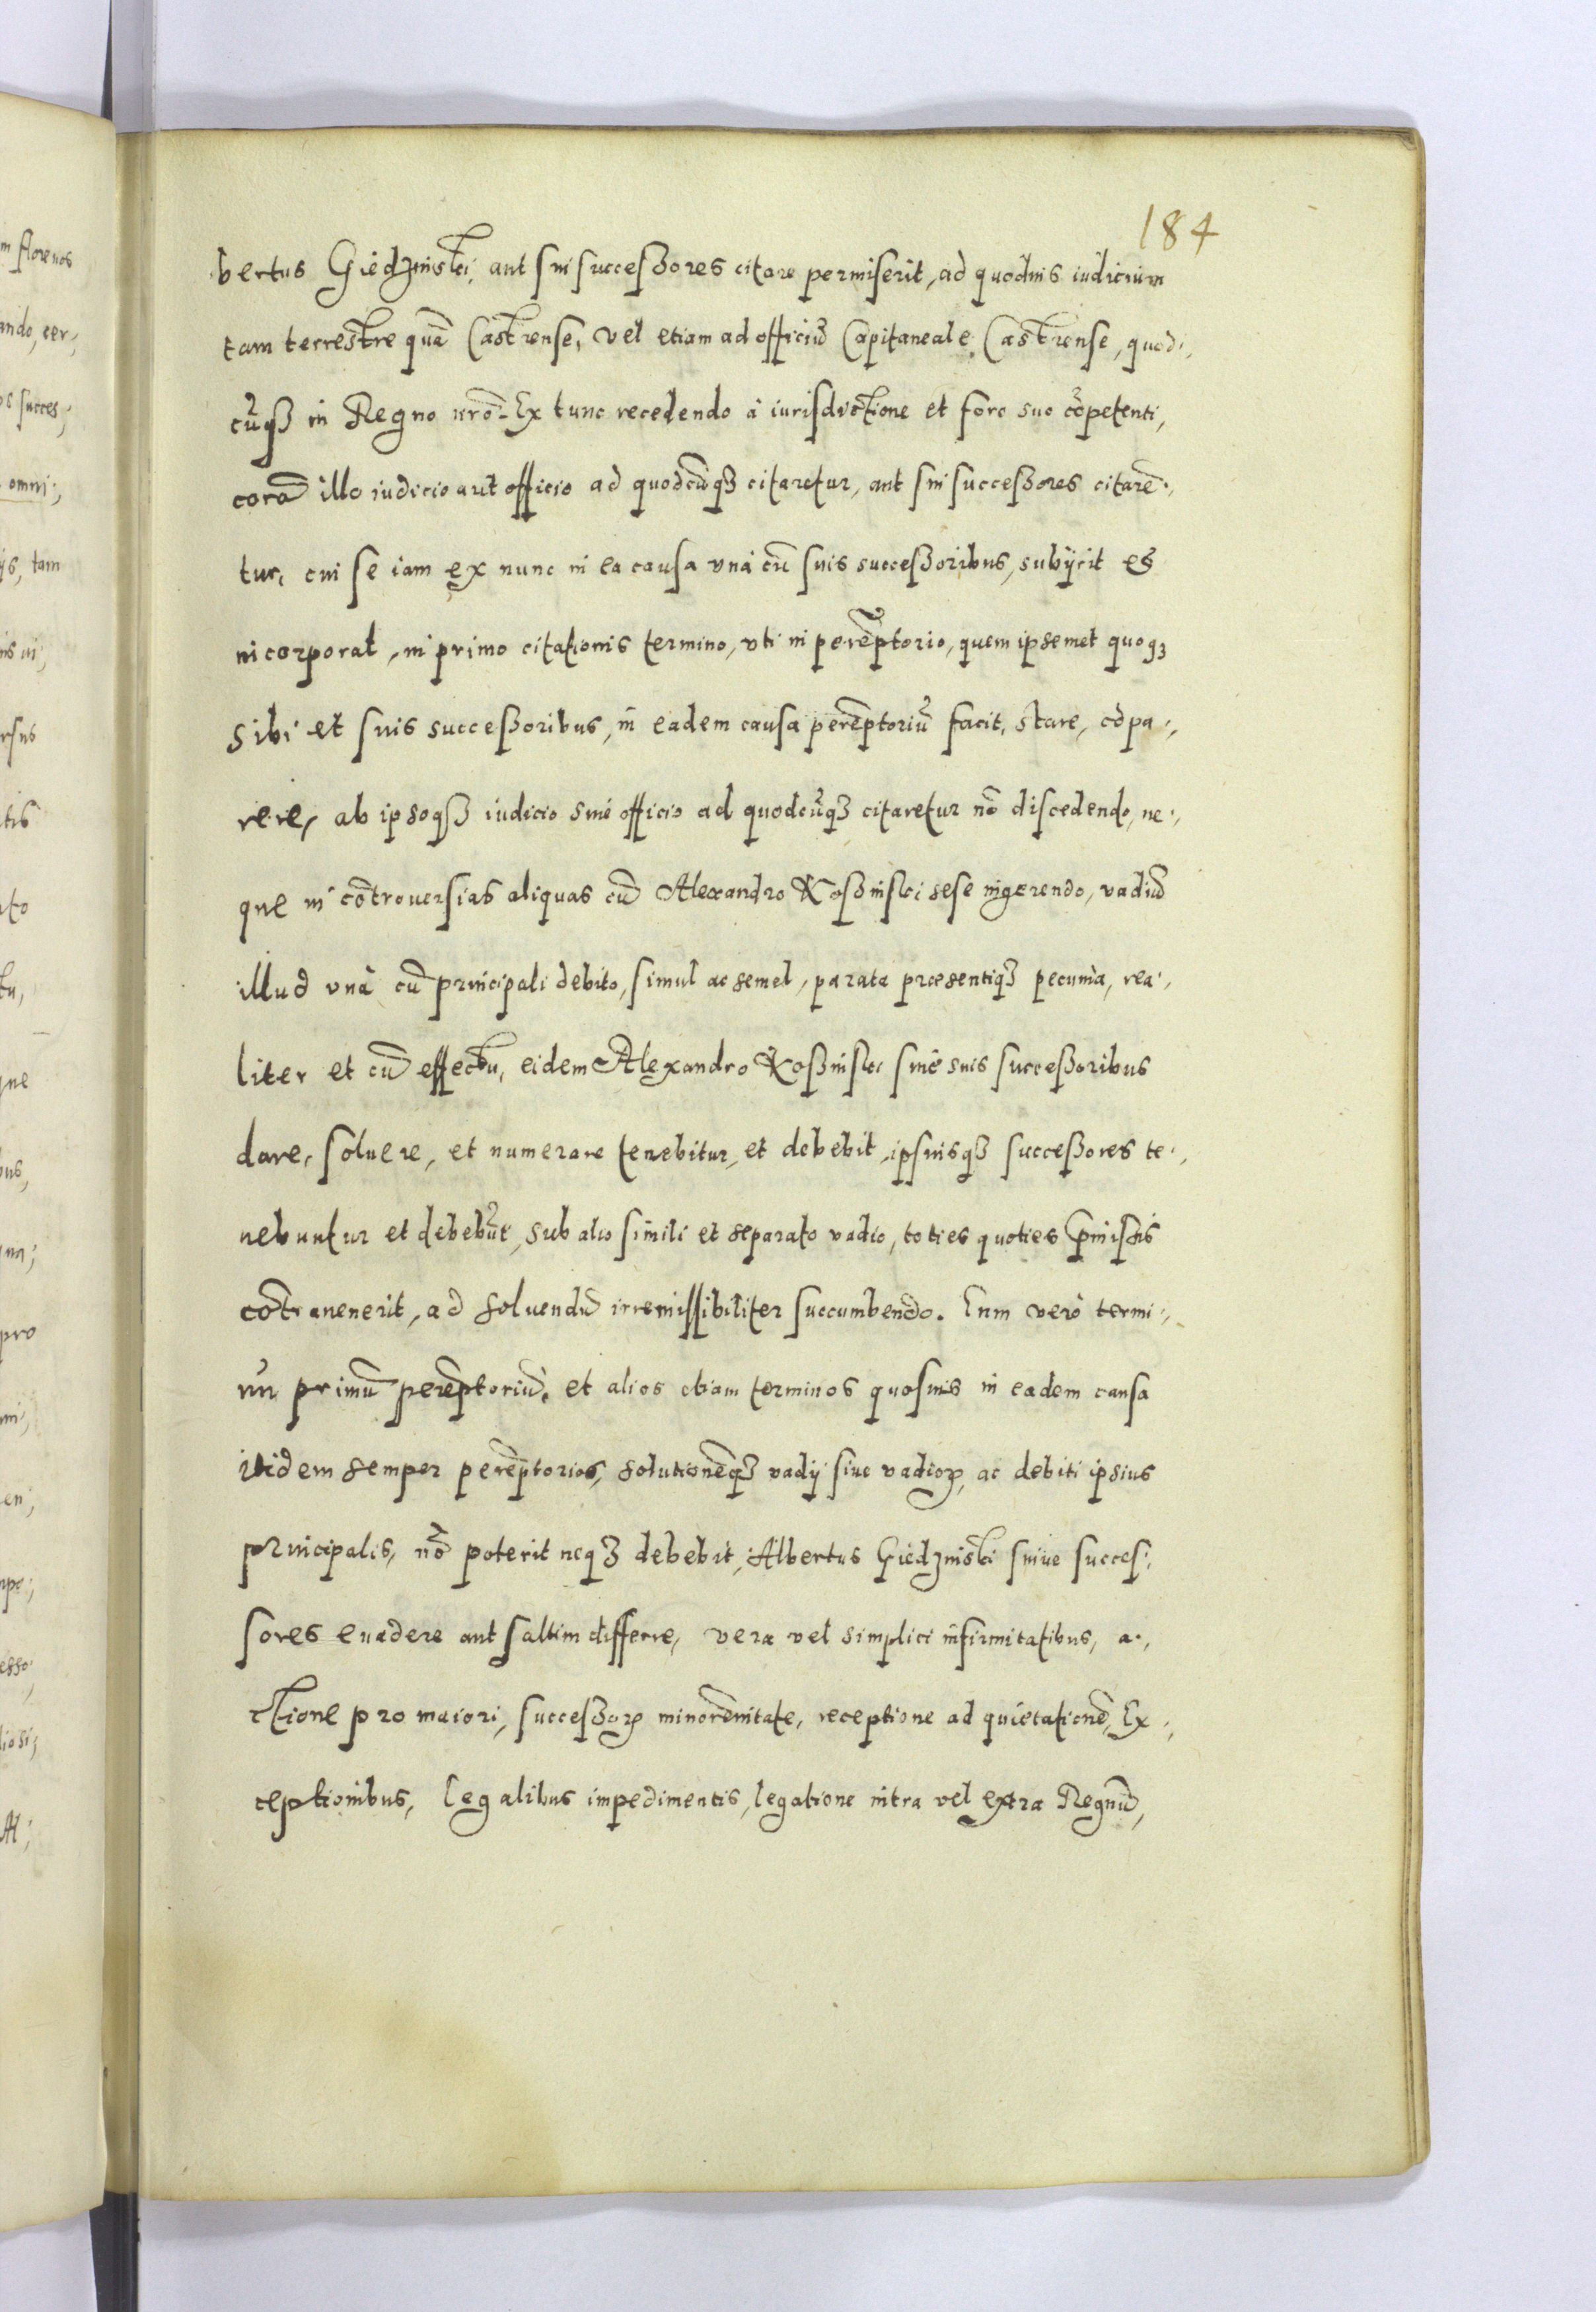 184
bertus Giedzinski, aut sui successores citare permiserit, ad quoduis iudicium
tam terrestre quã Castrense, vel etiam ad officiũ Capitaneale Castrense, quod-,
cũqȝ in Regno nrõ. Ex tunc recedendo à iurisdictione et foro suo cõpetenti,
corã illo iudicio aut officio ad quodcũqȝ citaretur, aut sui successores citarẽ-,
tur, cui se iam ex nunc in ea causa vnà cũ suis successoribus, subÿcit et
incorporat, in primo citationis termino, vti in perẽptorio, quem ipsemet quoqȝ
sibi et suis successoribus, in eadem causa perẽptoriũ facit, stare, cõpa-,
rere, ab ipsoqȝ iudicio siue officio ad quodcũqȝ citaretur nõ discedendo, ne-,
que in cõtrouersias aliquas cũ Alexandro Kossinski sese ingerendo, vadiũ
illud vnà cũ principali debito, simul ac semel, parata præsentiqȝ pecunia, rea-,
liter et cũ effectu, eidem Alexandro Kossinski siue suis successoribus
dare, soluere, et numerare tenebitur, et debebit, ipsiusqȝ successores te-,
nebuntur et debebũt, sub alio simili et separato vadio, toties quoties p̃missis
cõtrauenerit, ad soluendũ irremissibiliter succumbendo. Eum verò termi-,
nũ primũ perẽptoriũ, et alios etiam terminos quosuis in eadem causa
itidem semper perẽptorios, solutionẽqȝ vadÿ siue vadioꝝ, ac debiti ipsius
principalis, nõ poterit neqȝ debebit, Albertus Giedzinski suiue succes-,
sores euadere aut saltim differre, vera vel simplici infirmitatibus, a-,
ctione pro maiori, successoꝝ minorẽnitate, receptione ad quietationẽ, Ex-,
ceptionibus, legalibus impedimentis, legatione intra vel extra Regnũ,